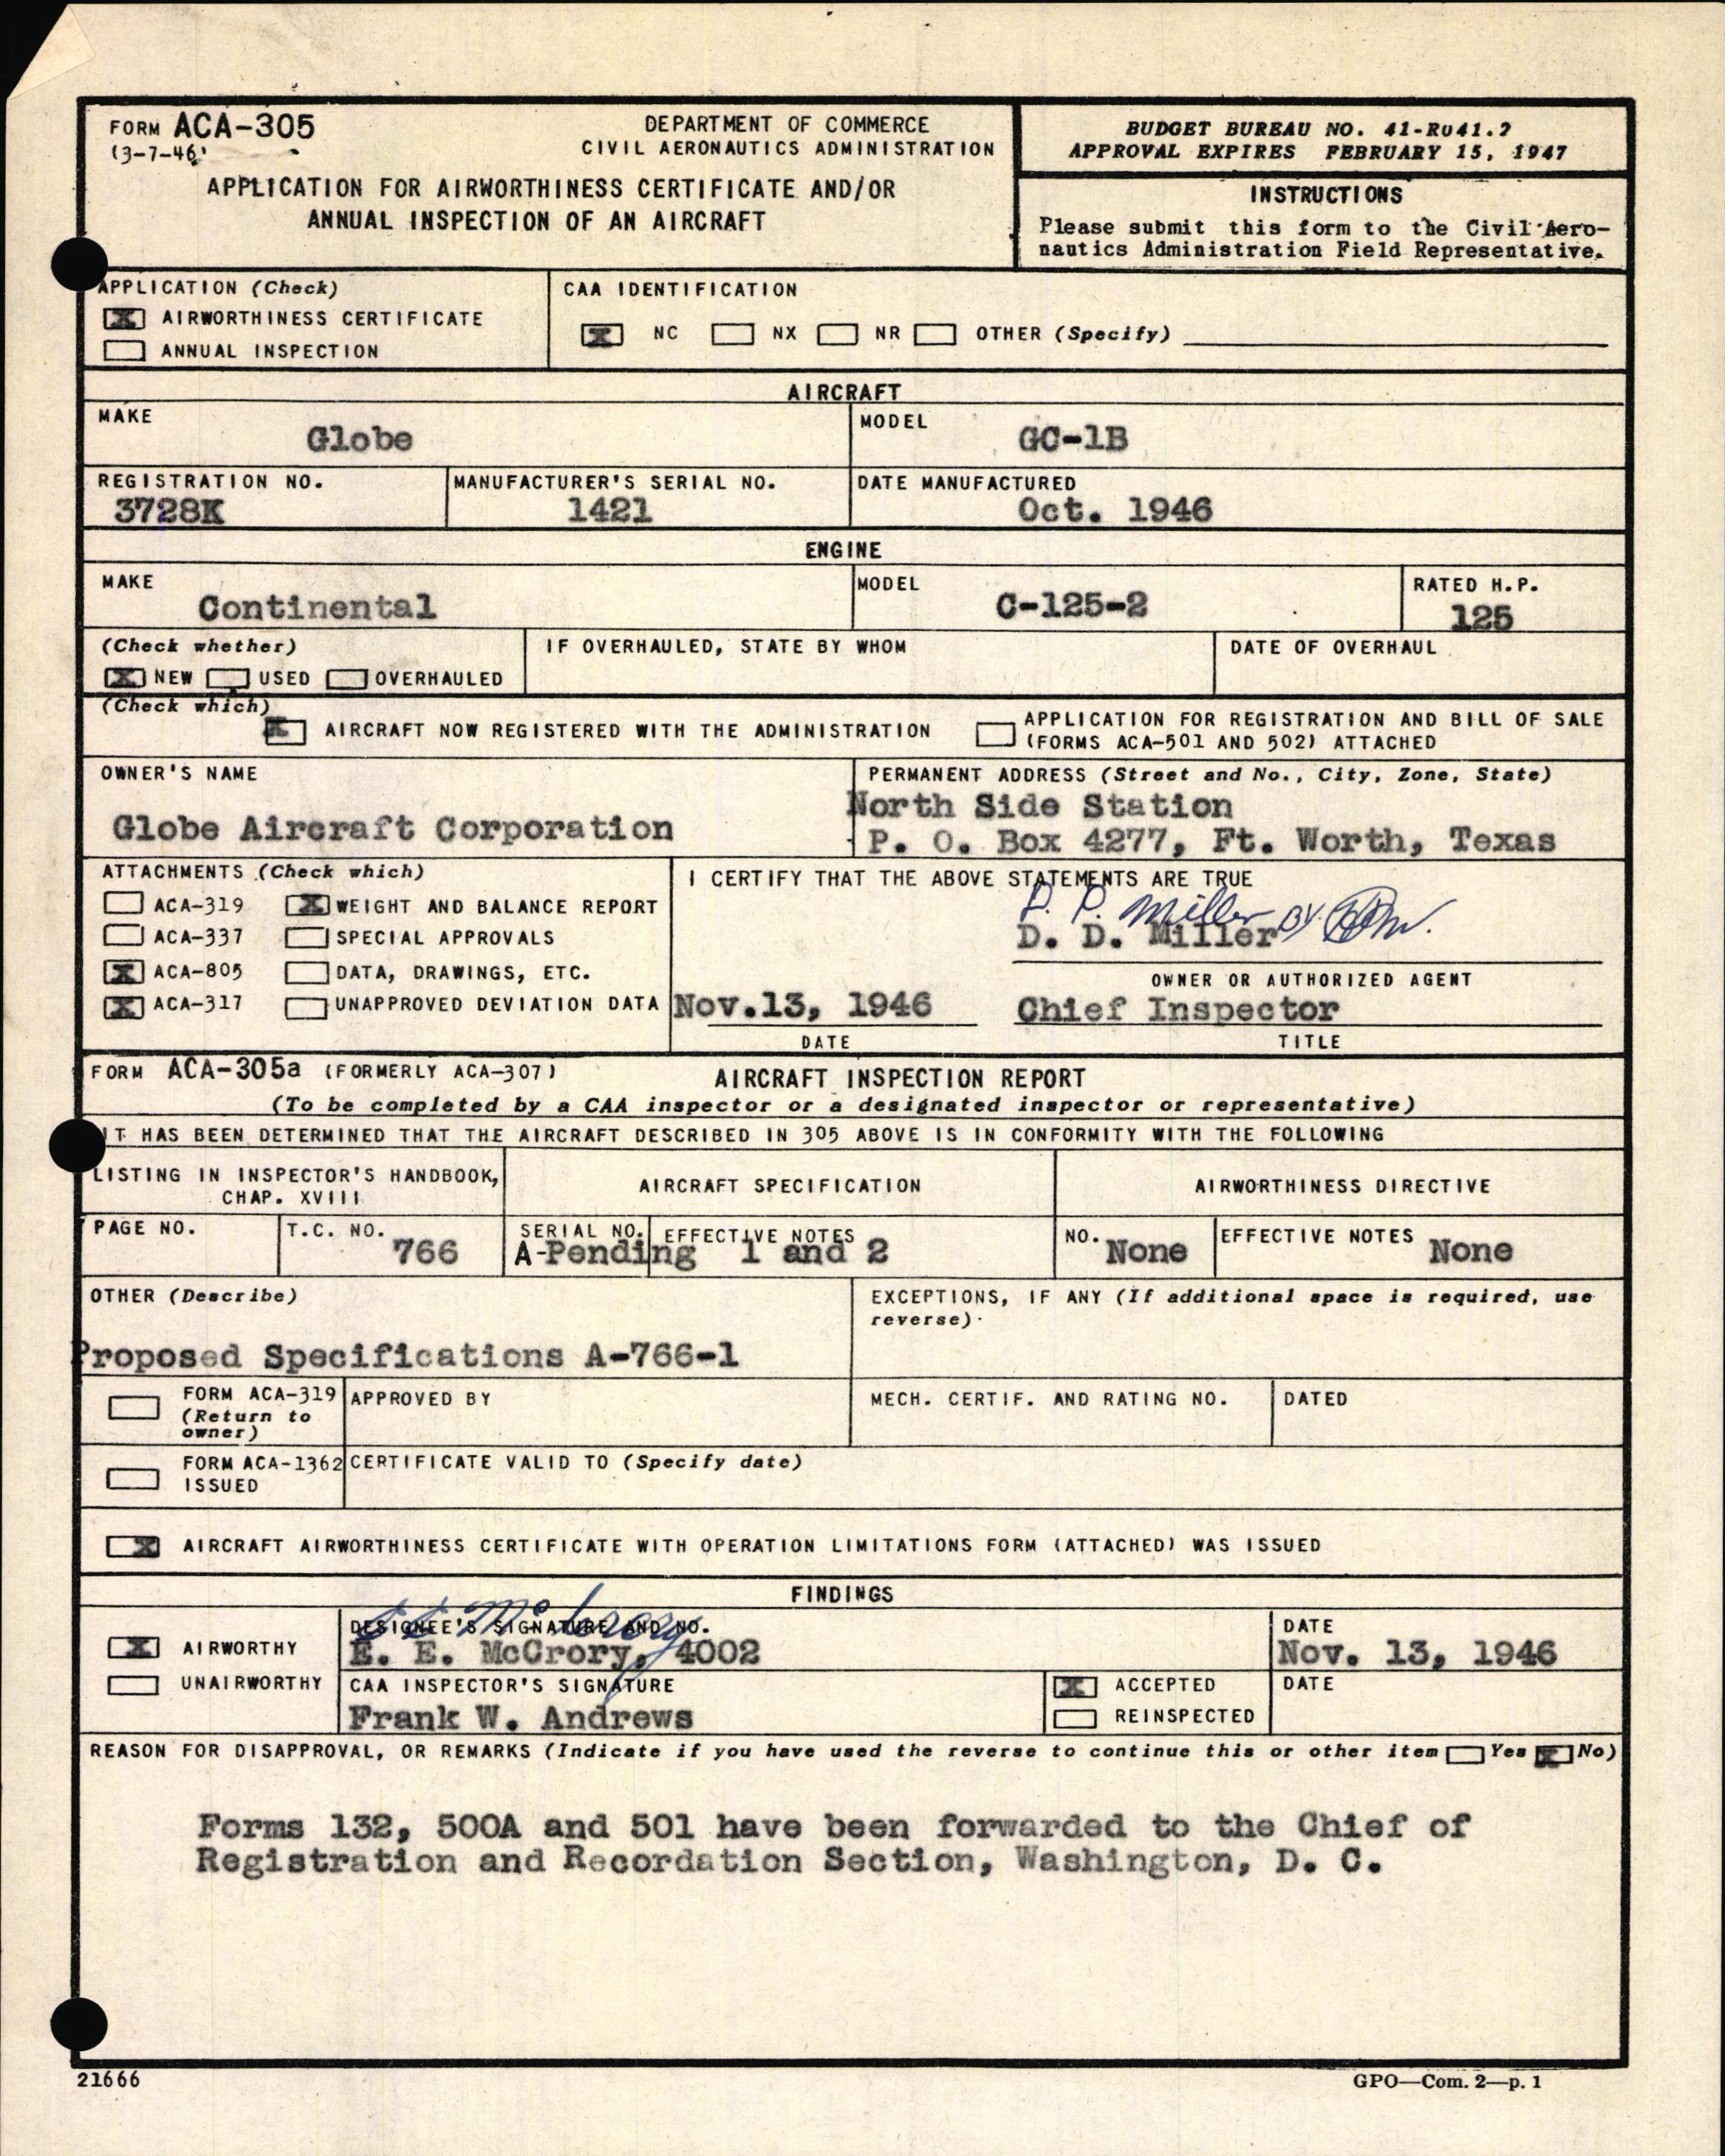 FORM ACA-305
(3-7-46)
DEPARTMENT OF COMMERCE
CIVIL AERONAUTICS ADMINISTRATION
APPLICATION FOR AIRWORTHINESS CERTIFICATE AND/OR
ANNUAL INSPECTION OF AN AIRCRAFT
BUDGET BUREAU NO. 41-R041.2
APPROVAL EXPIRES FEBRUARY 15, 1947
INSTRUCTIONS
Please submit this form to the Civil Aero-
nautics Administration Field Representative.
APPLICATION (Check)
X AIRWORTHINESS CERTIFICATE
ANNUAL INSPECTION
CAA IDENTIFICATION
X NC NX NR OTHER (Specify)
AIRCRAFT
MAKE
Globe
MODEL
GC-1B
REGISTRATION NO.
3728K
MANUFACTURER'S SERIAL NO.
1421
DATE MANUFACTURED
Oct. 1946
ENGINE
MAKE
Continental
MODEL
C-125-2
RATED H.P.
125
(Check whether)
X NEW USED OVERHAULED
IF OVERHAULED, STATE BY WHOM
DATE OF OVERHAUL
(Check which)
X AIRCRAFT NOW REGISTERED WITH THE ADMINISTRATION
APPLICATION FOR REGISTRATION AND BILL OF SALE
(FORMS ACA-501 AND 502) ATTACHED
OWNER'S NAME
Globe Aircraft Corporation
PERMANENT ADDRESS (Street and No., City, Zone, State)
North Side Station
P. O. Box 4277, Ft. Worth, Texas
ATTACHMENTS (Check which)
ACA-319 X WEIGHT AND BALANCE REPORT
ACA-337 SPECIAL APPROVALS
X ACA-805 DATA, DRAWINGS, ETC.
X ACA-317 UNAPPROVED DEVIATION DATA
I CERTIFY THAT THE ABOVE STATEMENTS ARE TRUE
D. D. Miller BY
D. D. Miller
OWNER OR AUTHORIZED AGENT
Nov.13, 1946 Chief Inspector
DATE TITLE
FORM ACA-305a (FORMERLY ACA-307)
AIRCRAFT INSPECTION REPORT
(To be completed by a CAA inspector or a designated inspector or representative)
IT HAS BEEN DETERMINED THAT THE AIRCRAFT DESCRIBED IN 305 ABOVE IS IN CONFORMITY WITH THE FOLLOWING
LISTING IN INSPECTOR'S HANDBOOK,
CHAP. XVIII
AIRCRAFT SPECIFICATION
AIRWORTHINESS DIRECTIVE
PAGE NO.
T.C. NO.
766
SERIAL NO. EFFECTIVE NOTES
A-Pending 1 and 2
NO.
None
EFFECTIVE NOTES
None
OTHER (Describe)
Proposed Specifications A-766-1
EXCEPTIONS, IF ANY (If additional space is required, use
reverse).
FORM ACA-319
(Return to
owner)
APPROVED BY
MECH. CERTIF. AND RATING NO.
DATED
FORM ACA-1362
ISSUED
CERTIFICATE VALID TO (Specify date)
X AIRCRAFT AIRWORTHINESS CERTIFICATE WITH OPERATION LIMITATIONS FORM (ATTACHED) WAS ISSUED
FINDINGS
X AIRWORTHY
UNAIRWORTHY
E E McCrory
DESIGNEE'S SIGNATURE AND NO.
E. E. McCrory, 4002
DATE
Nov. 13, 1946
CAA INSPECTOR'S SIGNATURE
Frank W. Andrews
X ACCEPTED
REINSPECTED
DATE
REASON FOR DISAPPROVAL, OR REMARKS (Indicate if you have used the reverse to continue this or other item Yes X No)
Forms 132, 500A and 501 have been forwarded to the Chief of
Registration and Recordation Section, Washington, D. C.
21666
GPO—Com. 2—p. 1